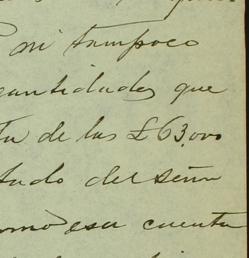 ni tampoco
cantidades que
ta de las £63,000
tado del señor
como esa cuenta